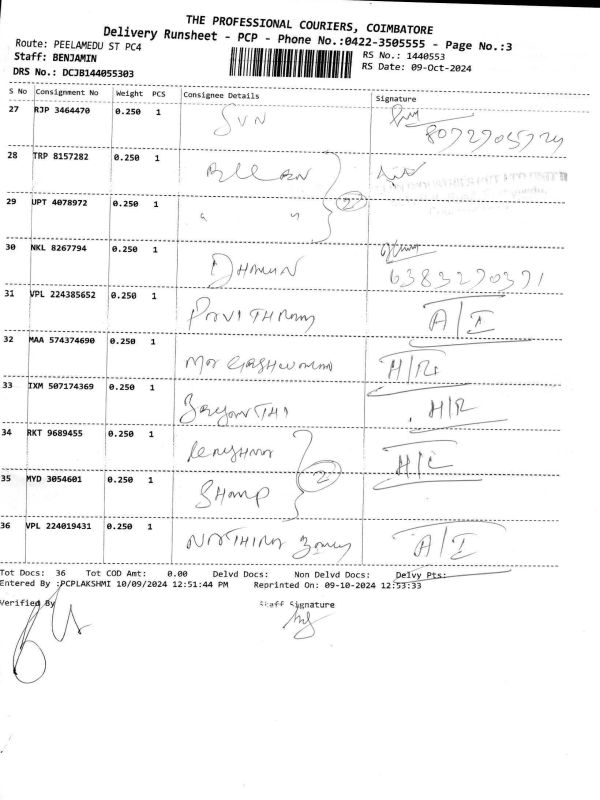 THE PROFESSIONAL COURIERS, COIMBATORE
Delivery Runsheet - PCP - Phone No.:0422-3505555 - Page No.:3
Route: PEELAMEDU ST PC4
RS No.: 1440553
Staff: BENJAMIN
RS Date: 09-Oct-2024
DRS No.: DCJB144055303
S No Consignment No Weight PCS Consignee Details Signature
27 RJP 3464470 0.250 1 SVN
8072705724
28 TRP 8157282 0.250 1
29 UPT 4078972 0.250 1 " " 2
30 NKL 8267794 0.250 1
6383270371
31 VPL 224385652 0.250 1 A/I
32 MAA 574374690 0.250 1 H/R
33 IXM 507174369 0.250 1 H/R
34 RKT 9689455 0.250 1 H/L
35 MYD 3054601 0.250 1 2
36 VPL 224019431 0.250 1 A/I
Tot Docs: 36 Tot COD Amt: 0.00 Delvd Docs: Non Delvd Docs: Delvy Pts:
Entered By :PCPLAKSHMI 10/09/2024 12:51:44 PM Reprinted On: 09-10-2024 12:53:33
Verified By Staff Signature